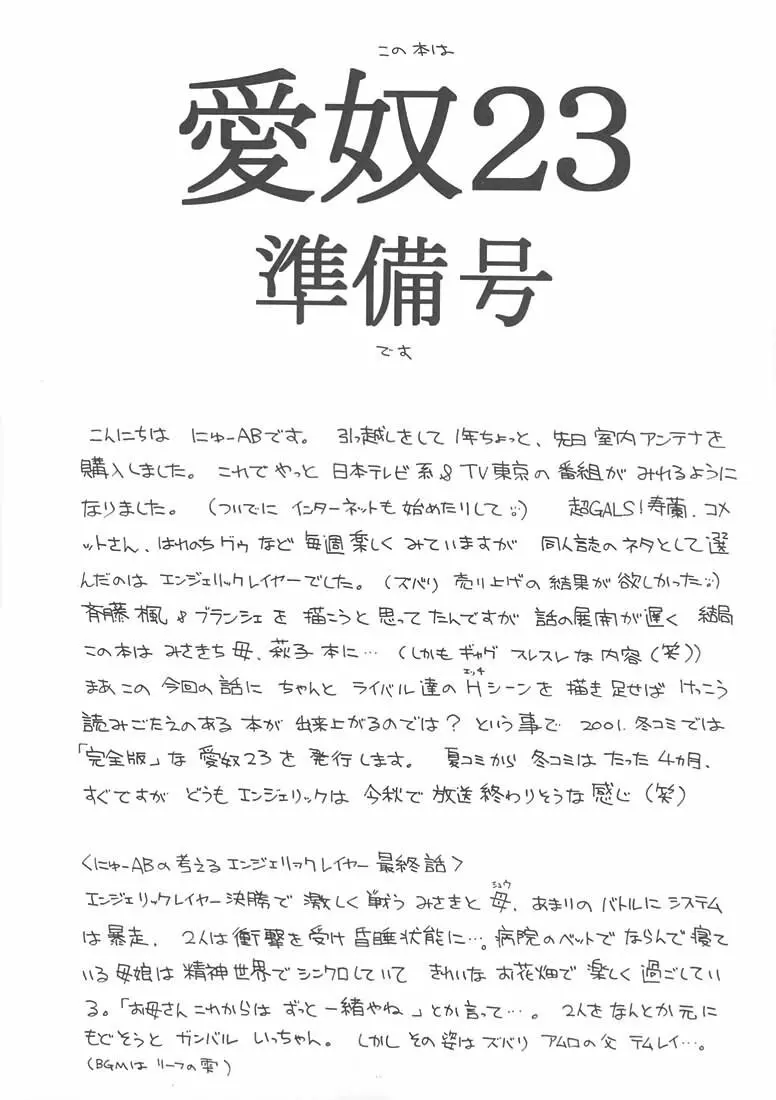 この本は
愛奴23
準備号
です
こんにちは にゅーABです。 引っ越しをして 1年ちょっと、先日 室内アンテナを
購入しました。 これでやっと 日本テレビ系& TV東京の番組が みれるように
なりました。 (ついでに インターネットも始めたりして) 超GALS!寿蘭、コメ
ットさん、はれのちグゥなど 毎週楽しく みていますが 同人誌のネタとして選
んだのは エンジェリックレイヤーでした。(ズバリ 売り上げの結果が欲しかった)
斉藤楓&ブランシェを 描こうと思ってたんですが 話の展開が遅く 結局
この本は みさきち母、萩子本に… (しかもギャグ スレスレな内容(笑))
まあこの 今回の話に ちゃんと ライバル達の Hシーンを 描き足せば けっこう
読みごたえのある 本が 出来上がるのでは? という事で 2001.冬コミでは
「完全版」な 愛奴23を 発行します。 夏コミから 冬コミは たった 4ヵ月、
すぐですが どうも エンジェリックは 今秋で 放送終わりそうな 感じ(笑)
<にゅーABの考える エンジェリックレイヤー 最終話>
エンジェリックレイヤー決勝で 激しく 戦う みさきと 母、あまりのバトルに システム
は暴走、 2人は衝撃を受け 昏睡状態に…。病院のベットで ならんで 寝て
いる 母娘は 精神世界で シンクロしていて きれいな お花畑で 楽しく 過ごしてい
る。「お母さん これからは ずっと 一緒やね」とか言って…。 2人を なんとか 元に
もどそうと ガンバル いっちゃん。 しかし その 姿は ズバリ アムロの父 テムレイ…。
(BGMは リーフの雫)